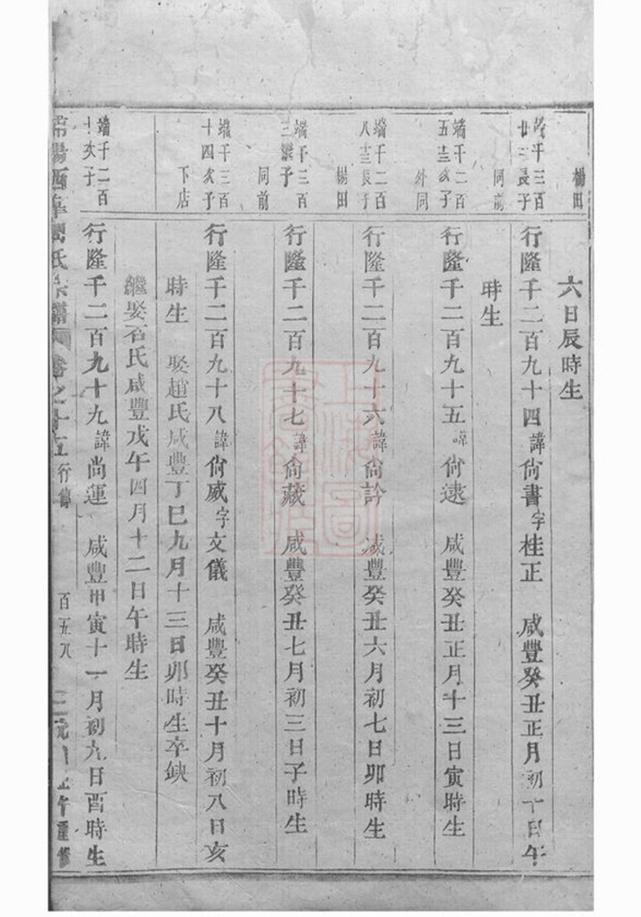 楊田
六日辰時生
端千三百
廿三長子
同前
行隆千二百九十四諱尙書字桂正　咸豐癸丑正月初十日午
時生
端千二百
五十三次子
外同
行隆千二百九十五諱尙遠　咸豐癸丑正月十三日寅時生
端千二百
八十三長子
楊田
行隆千二百九十六諱尙訡　咸豐癸丑六月初七日卯時生
端千三百
三繼子
同前
行隆千二百九十七諱尙藏　咸豐癸丑七月初三日子時生
端千三百
十四次子
下店
行隆千二百九十八諱尙威字文儀　咸豐癸丑十月初八日亥
時生　娶趙氏咸豐丁巳九月十三日卯時生卒缺
繼娶石氏咸豐戊午四月十二日午時生
端千二百
次子
行隆千二百九十九諱尙運　咸豐甲寅十一月初九日酉時生
氏宗譜　卷之十五　行傳　百五八　午重修